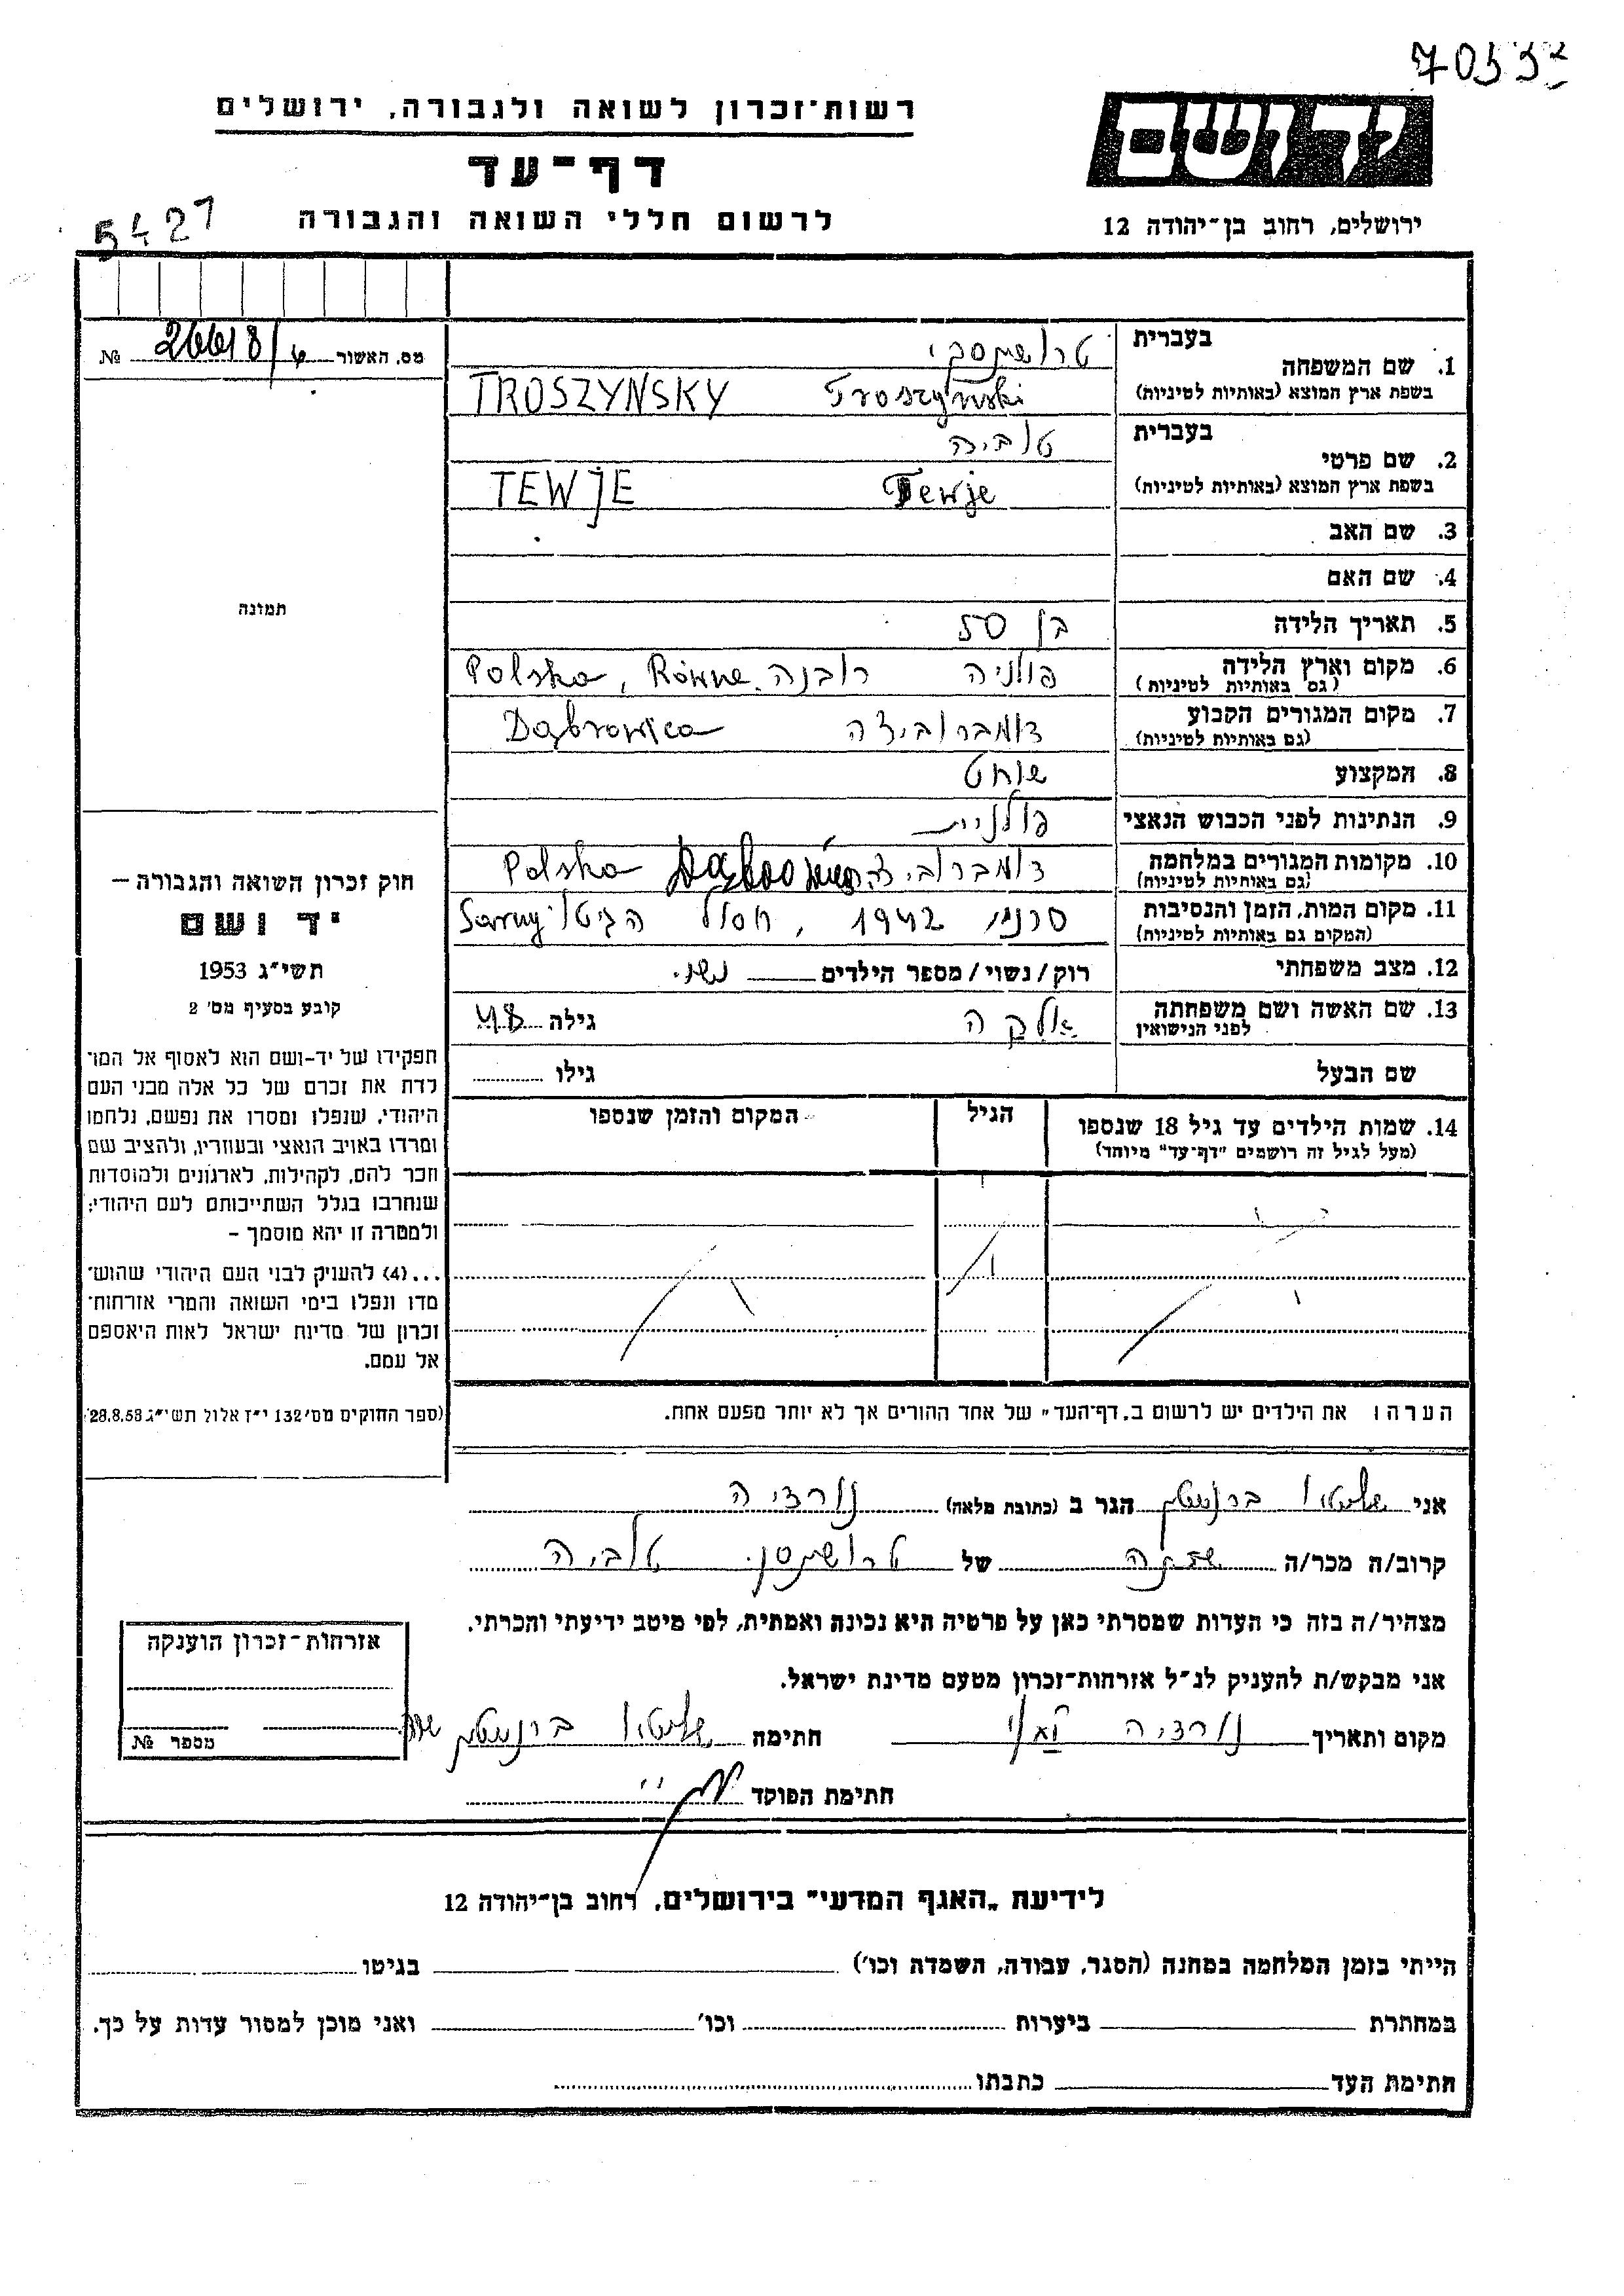 70552
רשות־זכרון לשואה ולגבורה, ירושלים
יד ושם
דף־עד
לרשום חללי השואה והגבורה
ירושלים, רחוב בן־יהודה 12
5427
מס. האשור 26618/ №
1. שם המשפחה
בעברית
טרושינסקי
בשפת ארץ המוצא (באותיות לטיניות)
TROSZYNSKY Troszyński
2. שם פרטי
בעברית
טוביה
בשפת ארץ המוצא (באותיות לטיניות)
TEWJE Tewje
3. שם האב
4. שם האם
תמונה
5. תאריך הלידה
בן 50
6. מקום וארץ הלידה
(גם באותיות לטיניות)
פולניה רובנה Polska, Równe
7. מקום המגורים הקבוע
(גם באותיות לטיניות)
דומברוביצה Dąbrowica
8. המקצוע
שוחט
9. הנתינות לפני הכבוש הנאצי
פולנית
10. מקומות המגורים במלחמה
(גם באותיות לטיניות)
דומברוביצה Polska
11. מקום המות, הזמן והנסיבות
(המקום גם באותיות לטיניות)
סרני 1942, חסול הגיטו Sarny
12. מצב משפחתי
רוק/נשוי/מספר הילדים נשוי
13. שם האשה ושם משפחתה
לפני הנישואין
אלקה גילה 48
שם הבעל גילו
14. שמות הילדים עד גיל 18 שנספו
(מעל לגיל זה רושמים "דף־עד" מיוחד)
הגיל
המקום והזמן שנספו
חוק זכרון השואה והגבורה –
יד ושם
תשי"ג 1953
קובע בסעיף מס' 2
תפקידו של יד-ושם הוא לאסוף אל המו־
לדת את זכרם של כל אלה מבני העם
היהודי, שנפלו ומסרו את נפשם, נלחמו
ומרדו באויב הנאצי ובעוזריו, ולהציב שם
וזכר להם, לקהילות, לארגונים ולמוסדות
שנחרבו בגלל השתייכותם לעם היהודי;
ולמטרה זו יהא מוסמך –
...(4) להעניק לבני העם היהודי שהוש־
מדו ונפלו בימי השואה והמרי אזרחות־
זכרון של מדינת ישראל לאות היאספם
אל עמם.
(ספר החוקים מס' 132 י"ז אלול תשי"ג 28.8.53)
הערה: את הילדים יש לרשום ב„דף־העד" של אחד ההורים אך לא יותר מפעם אחת.
אני ברנשטין הגר ב (כתובת מלאה) נורדיה
קרוב/ה מכר/ה שכנה של טרושינסקי טוביה
מצהיר/ה בזה כי העדות שמסרתי כאן על פרטיה היא נכונה ואמתית, לפי מיטב ידיעתי והכרתי.
אני מבקש/ת להעניק לנ"ל אזרחות־זכרון מטעם מדינת ישראל.
מקום ותאריך נורדיה חתימה ברנשטין
חתימת הפוקד
אזרחות־זכרון הוענקה
מספר №
לידיעת „האגף המדעי" בירושלים, רחוב בן־יהודה 12
הייתי בזמן המלחמה במחנה (הסגר, עבודה, השמדה וכו') בגיטו
במחתרת ביערות וכו' ואני מוכן למסור עדות על כך.
חתימת העד כתבתו